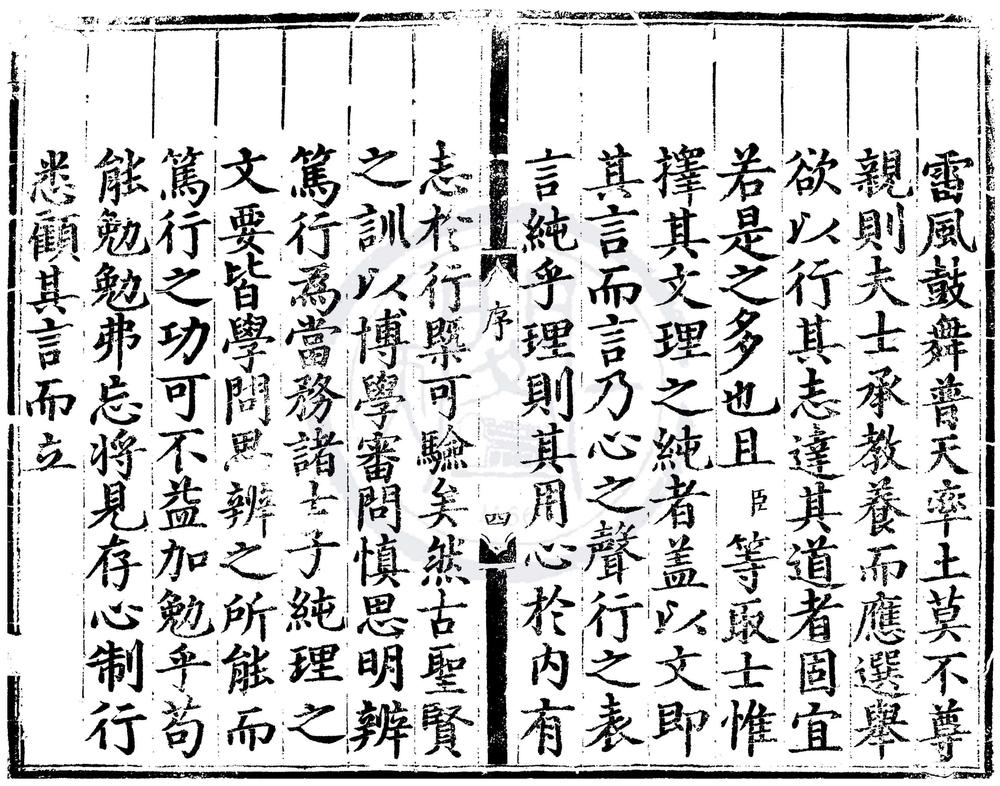 雷風鼓舞普天率土莫不尊
親則夫士承教養而應選舉
欲以行其志達其道者固宜
若是之多也且臣等取士惟
擇其文理之純者盖以文即
其言而言乃心之聲行之表
言純乎理則其用心於内有
序
四
志於行槩可驗矣然古聖賢
之訓以博學審問慎思明辨
篤行爲當務諸士子純理之
文要皆學問思辨之所能而
篤行之功可不益加勉乎苟
能勉勉弗忘将見存心制行
悉顧其言而立